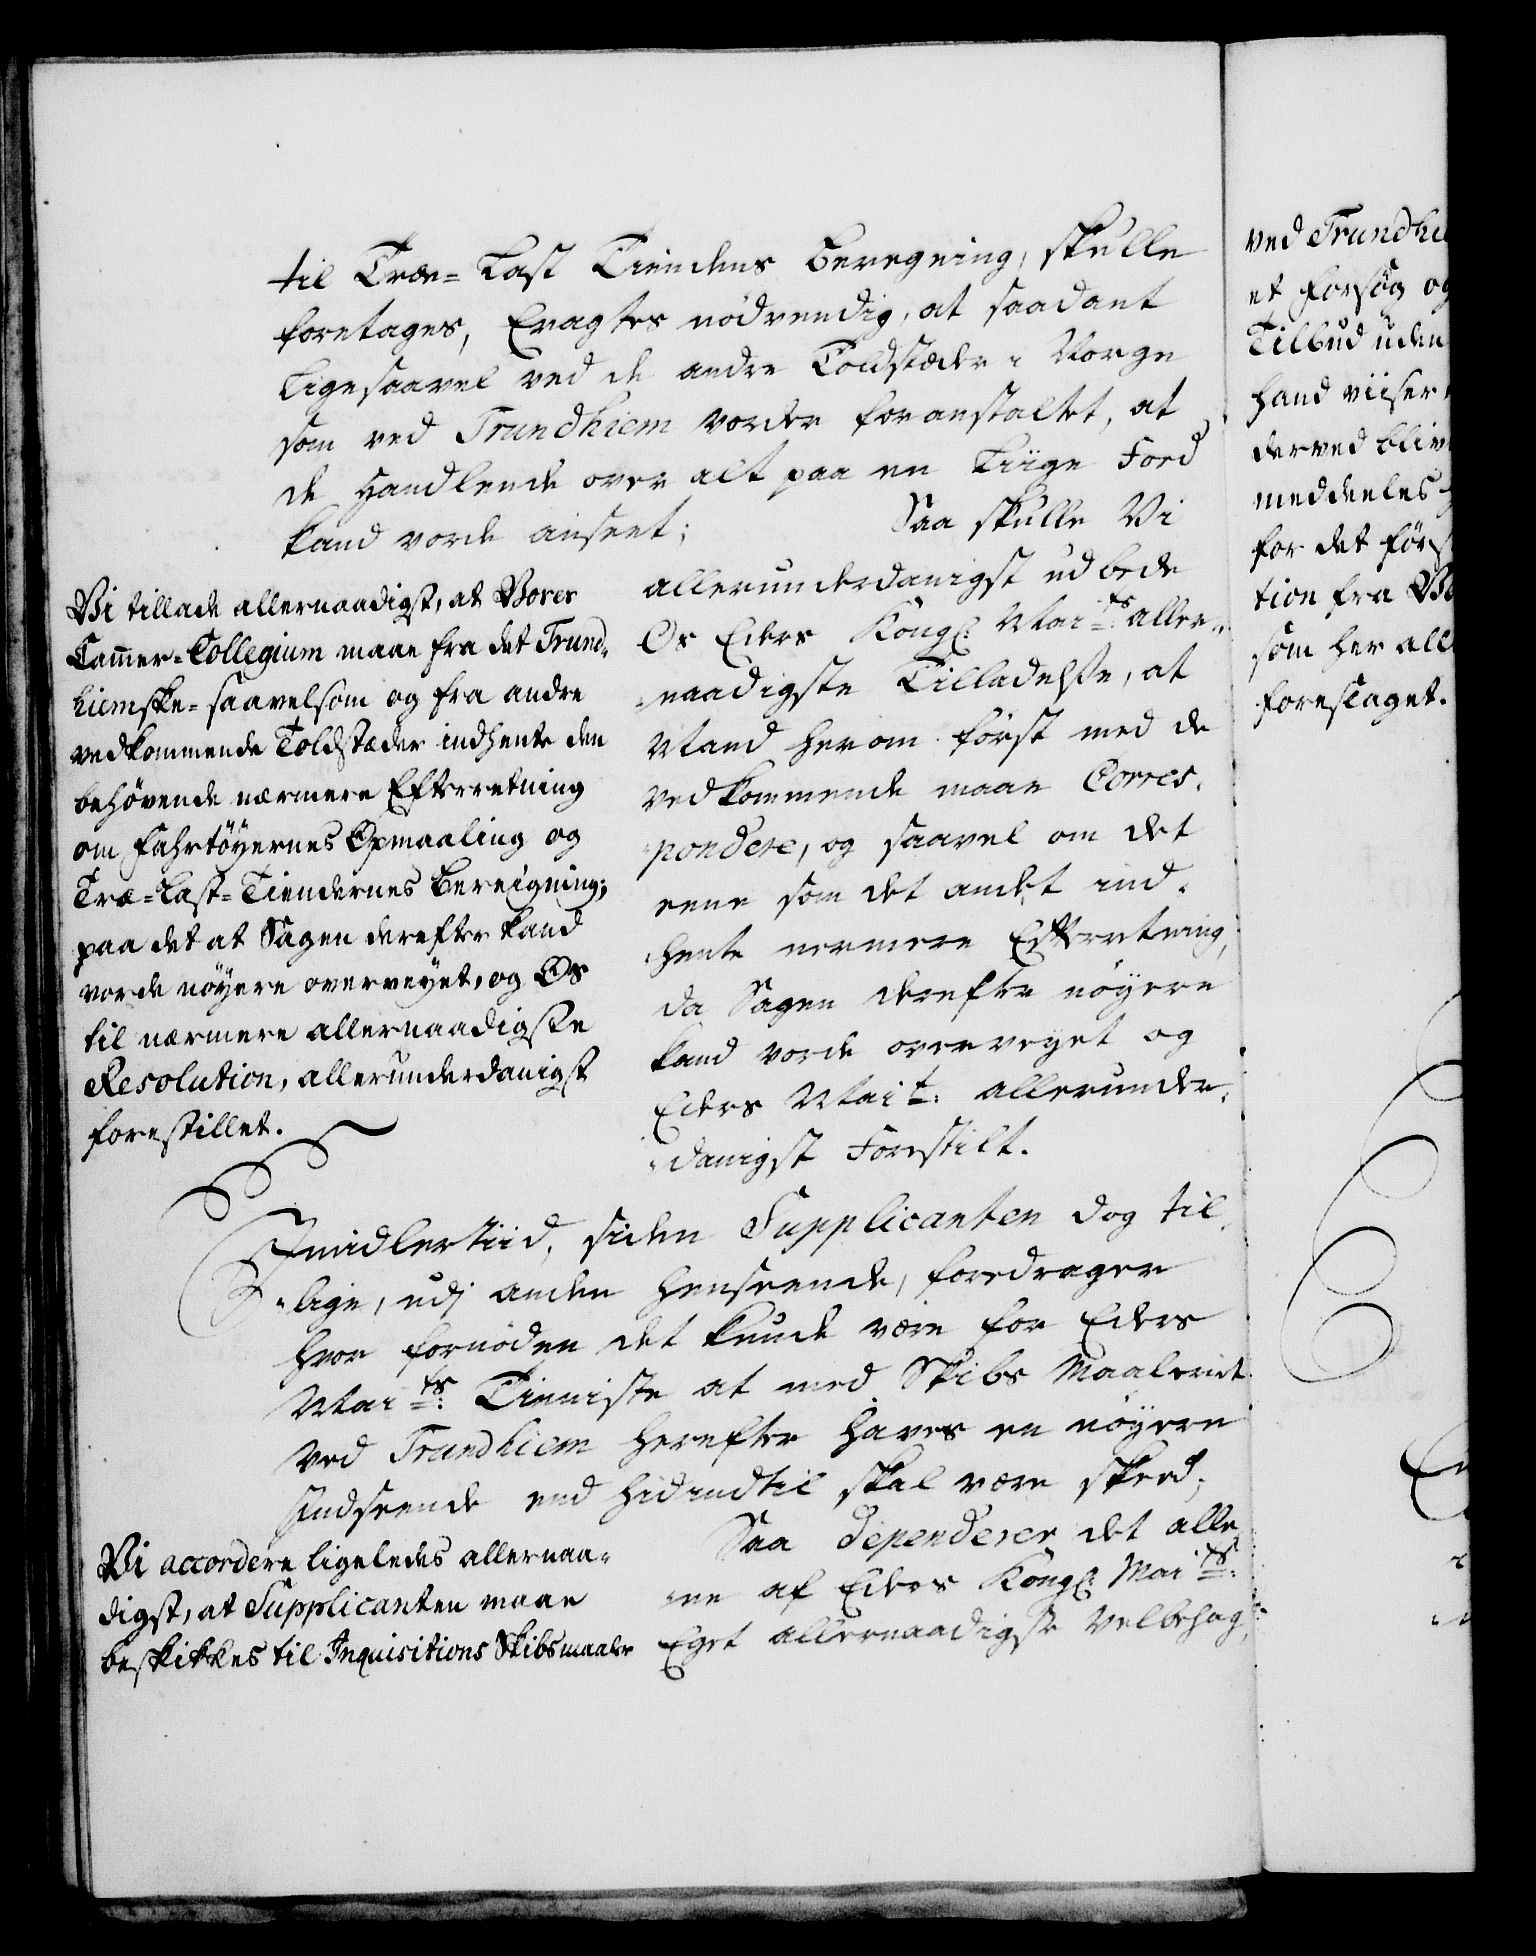 til Træe-Last Tiendens Beregning, skulle
foretages, Eragtes nødvendig, at saadant
Ligesaavel ved de andre Toldstæder i Norge
som ved Trundhiem vorder foranstaltet, at
de Handlende over alt paa en Liige Foed
kand vorde anseet;
Saa skulle Vi
allerunderdanigst udbede
Os Eders Kongl: Mai.ts aller-
naadigste Tilladelsse, at
Mand herom først med de
vedkommende maae Corres-
pondere, og saavel om det
eene som det andet ind-
hente nermere Efterretning,
da Sagen derefter nøyere
kand vorde overveyet og
Eders Mai.t: allerunder-
danigst Forestilt.
Vi tillade allernaadigst, at Vores
Cammer-Collegium maae fra det Trund-
hiemske- saavelsom og fra andre
vedkommende Toldstæder indhente den
behøvende nærmere Efterretning
om Fahrtøyernes Opmaaling og
Træ-Last-Tiendernes Bereigning;
paa det at Sagen derefter kand
vorde nøyere overveyet, og Os
til nærmere allernaadigste
Resolution, allerunderdanigst
forestillet.
Imidlertiid, siden Supplicanten dog til-
lige, udj anden Henseende, foredrager
hvor fornøden det kunde være for Eders
Mai.ts: Tienniste at med Skibs Maaleriet
ved Trundhiem herefter haves en nøyere
Indseende end hidindtil skal være skeed;
Saa dependerer det alle
ne af Eders Kongl: Mai.ts:
Eget allernaadigste Velbehag,
Vi accordere ligeledes allernaa-
digst, at Supplicanten maae
beskikkes til Inquisitions Skibsmaaler
ved Trundhie
et Forsøg og
Tilbud uden
hand viiser
derved bliv
meddeeles
for det først
tion fra Vo
som her all
foreslaget.